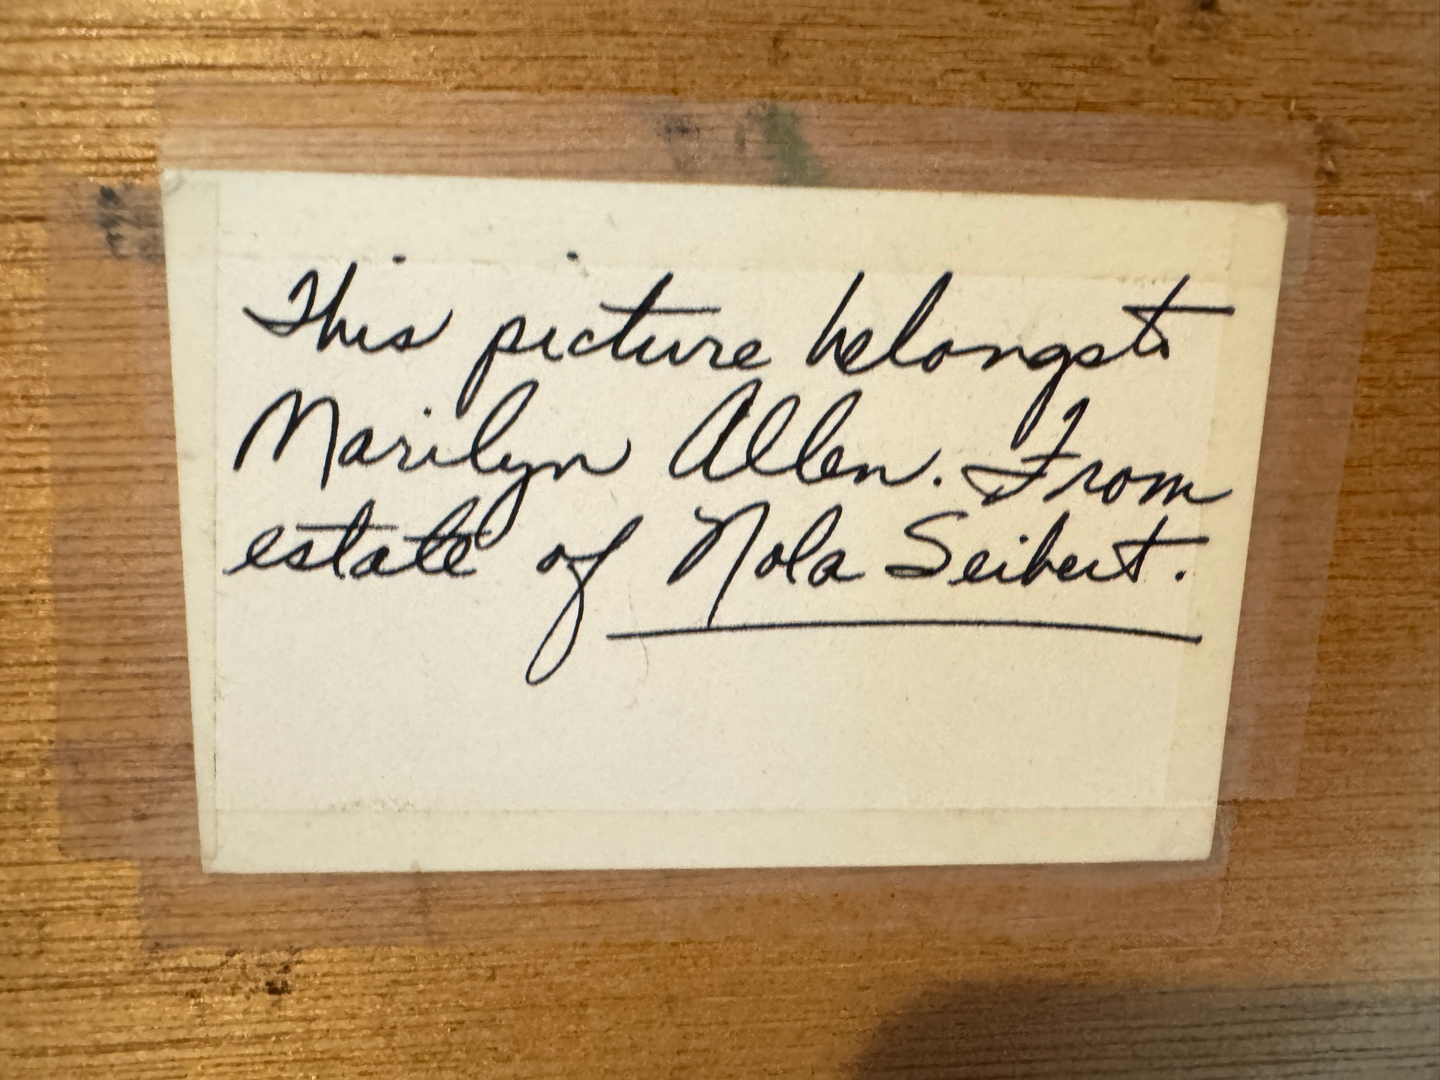 This picture belongs to
Marilyn Allen. From
estate of Nola Seibert.